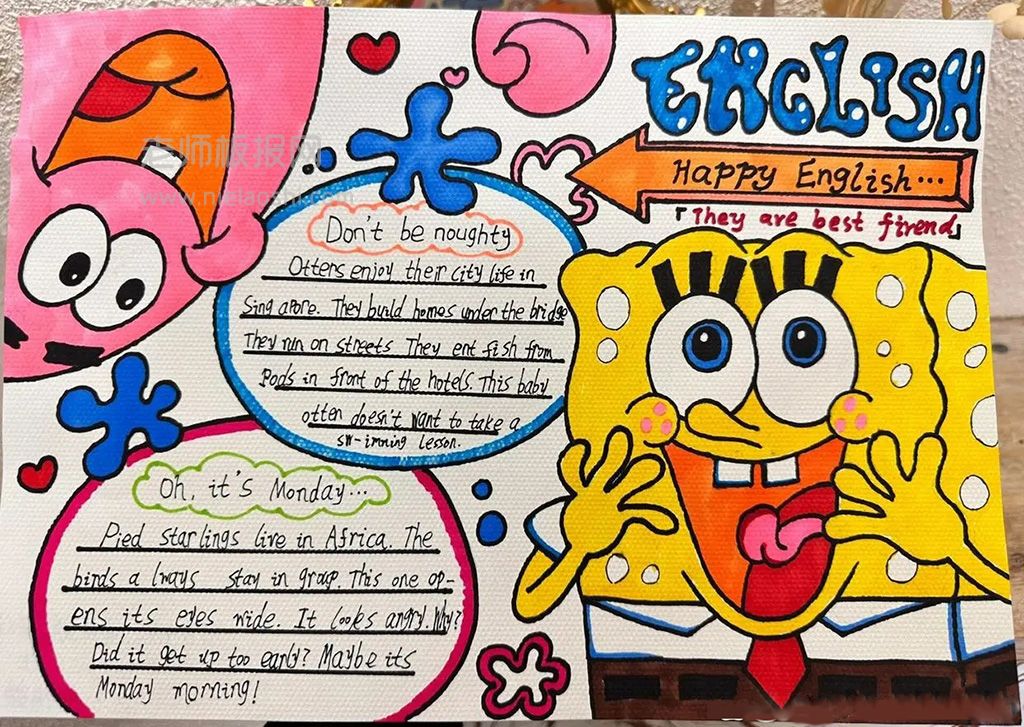 ENGLISH
Happy English...
「They are best firend」
Don't be noughty
Otters enjoy their city life in
Sing apore. They build homes under the bridge
They run on streets They ent fish from
Pods in front of the hotels. This baby
otten doesn't want to take a
sw-imming lesson.
Oh, it's Monday...
Pied starlings live in Africa. The
birds a lways stay in group. This one op-
ens its eyes wide. It looks angry. Why?
Did it get up too early? Maybe its
Monday morning!
老师板报网